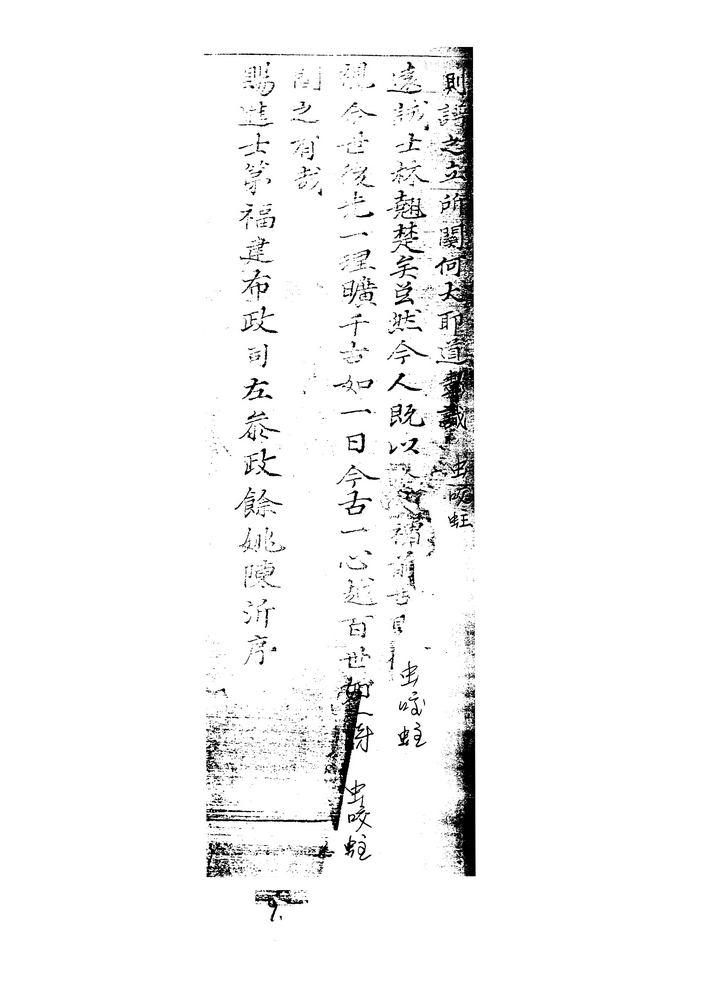 則譜之立所關何大耶道 識 虫咬蛀
遠 士林翹楚矣豈然今人既以 禰前古 虫咬蛀
視今世後先一理曠千古如一日今古一心越百世如一時 虫咬蛀
間之有哉
賜進士第福建布政司左叅政餘姚陳沂序
9.